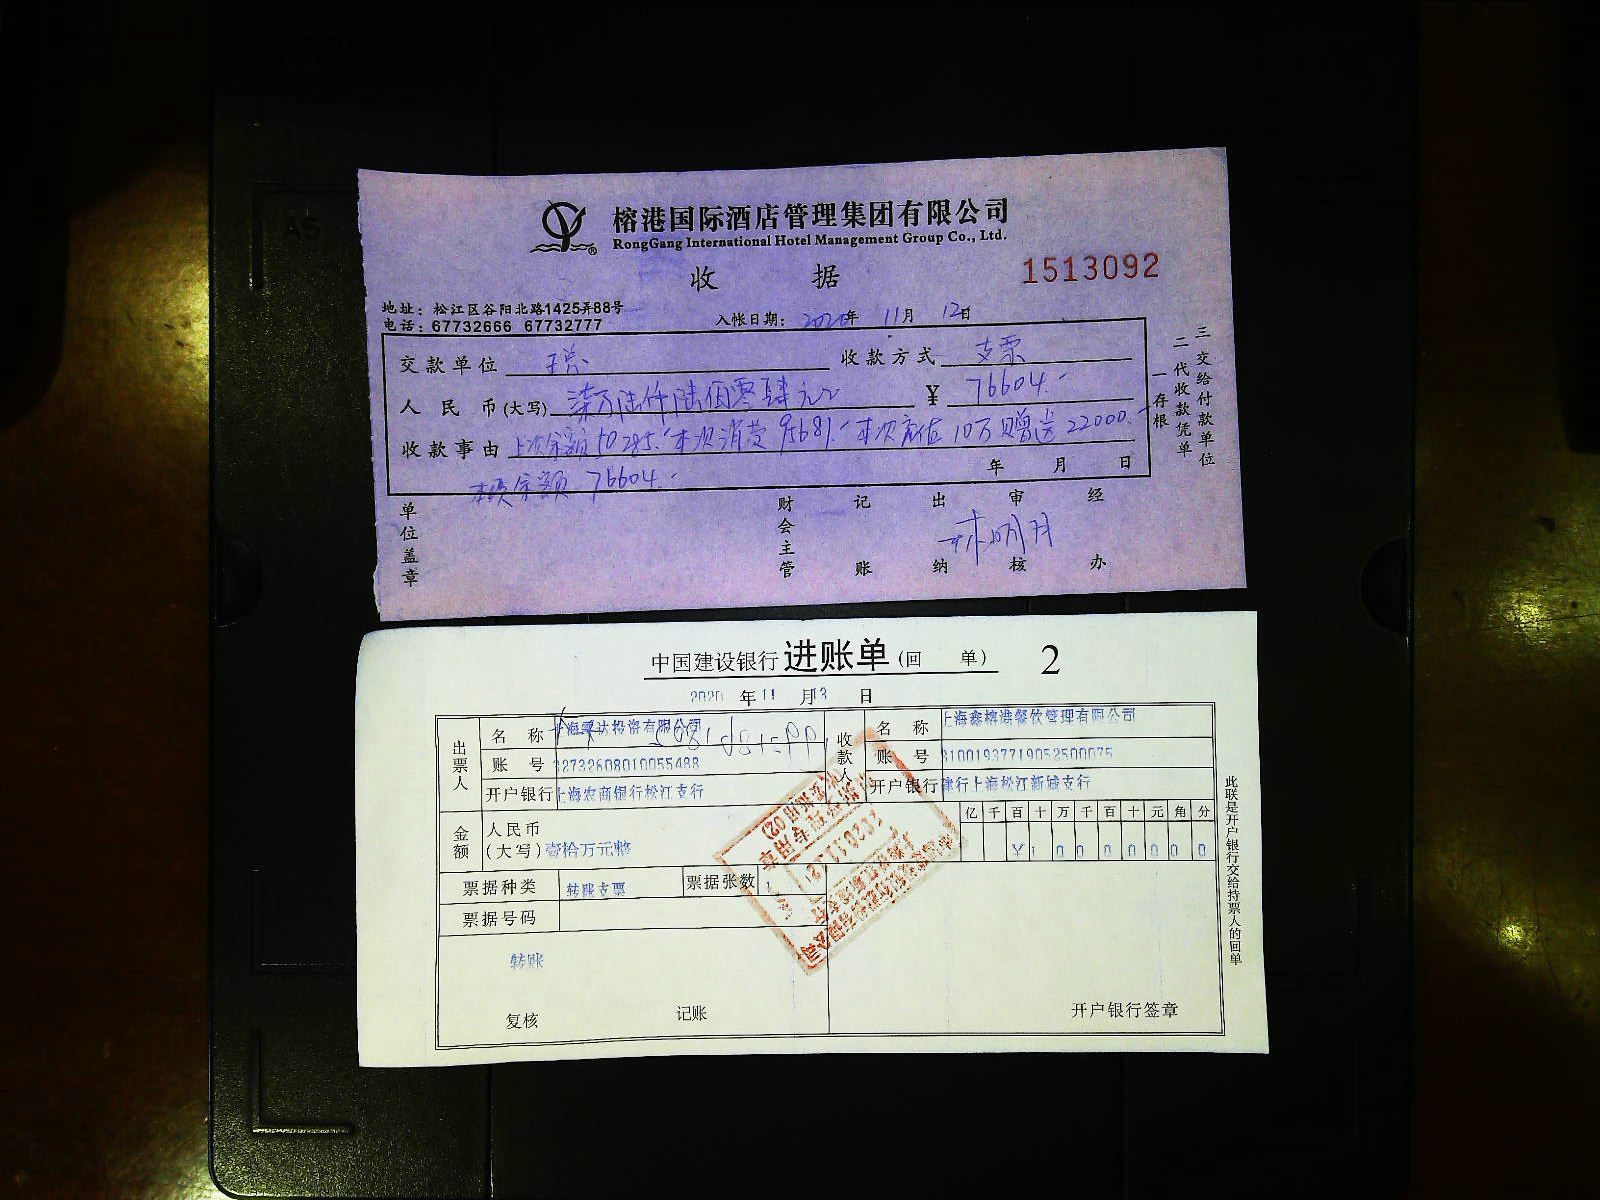 榕港国际酒店管理集团有限公司
RongGang International Hotel Management Group Co., Ltd.
收 据
1513092
地址：松江区谷阳北路1425弄88号
电话：67732666 67732777
入帐日期：2020年 11月 12日
交款单位 收款方式 支票
人民币(大写) 柒万陆仟陆佰零肆元 ¥ 76604.-
收款事由 上次余额 50285.- 本次消费 95681.- 本次充值 10万 赠送 22000.-
年 月 日
余额 76604.-
一存根
二代收款凭单
三交给付款单位
单位盖章
财会主管
记账
出纳
审核
经办
林明月
中国建设银行 进账单 (回 单) 2
2020 年 11 月 13 日
出票人
名 称 达投资有限公司
账 号 32732608010055488
开户银行 上海农商银行松江支行
收款人
名 称 上海鑫榕港餐饮管理有限公司
账 号 31001937719052500075
开户银行 建行上海松江新城支行
金额
人民币
(大写) 壹拾万元整
亿 千 百 十 万 千 百 十 元 角 分
¥ 1 0 0 0 0 0 0 0
票据种类 转账支票 票据张数 1
票据号码
转账
复核 记账
开户银行签章
此联是开户银行交给持票人的回单